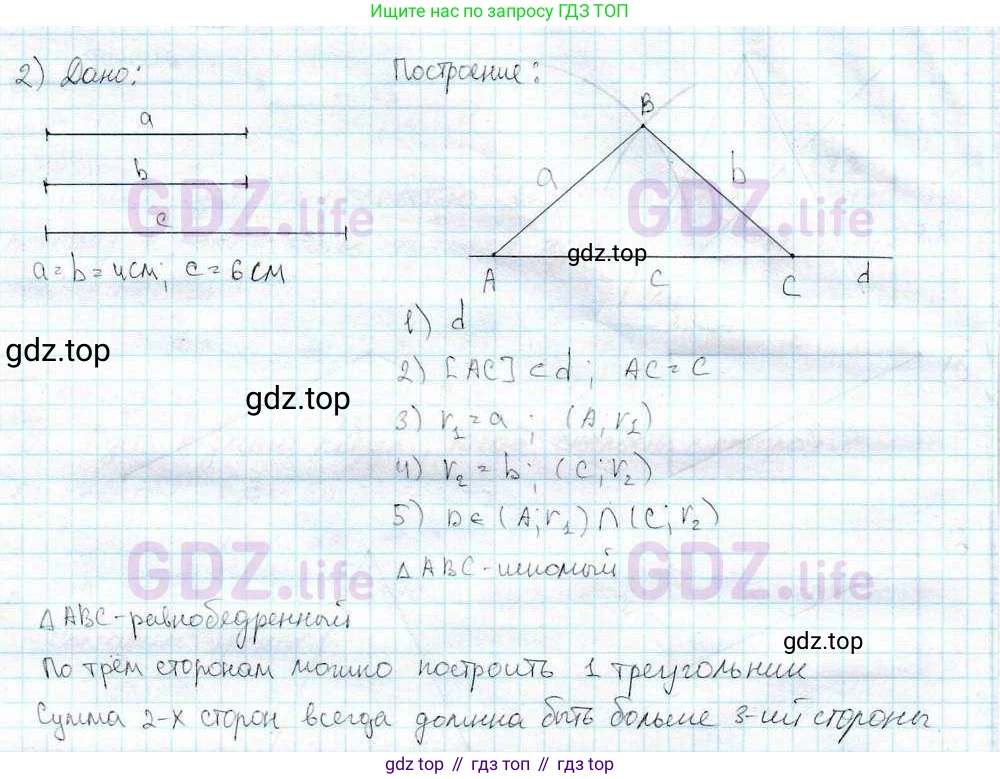 Ищите нас по запросу ГДЗ ТОП
2) Дано:
Построение:
a
b
c
a=b=4см; c=6см
B
a
b
A
c
C
d
1) d
2) [AC] ⊂ d; AC = C
3) r₁ = a ; (A; r₁)
4) r₂ = b; (C; r₂)
5) B ∈ (A; r₁) ∩ (C; r₂)
Δ ABC - искомый
Δ ABC - равнобедренный
По трём сторонам можно построить 1 треугольник
Сумма 2-х сторон всегда должна быть больше 3-ий стороны.
GDZ.life
GDZ.life
GDZ.life
GDZ.life
gdz.top
gdz.top
gdz.top
gdz.top
gdz топ // гдз топ // гдз top